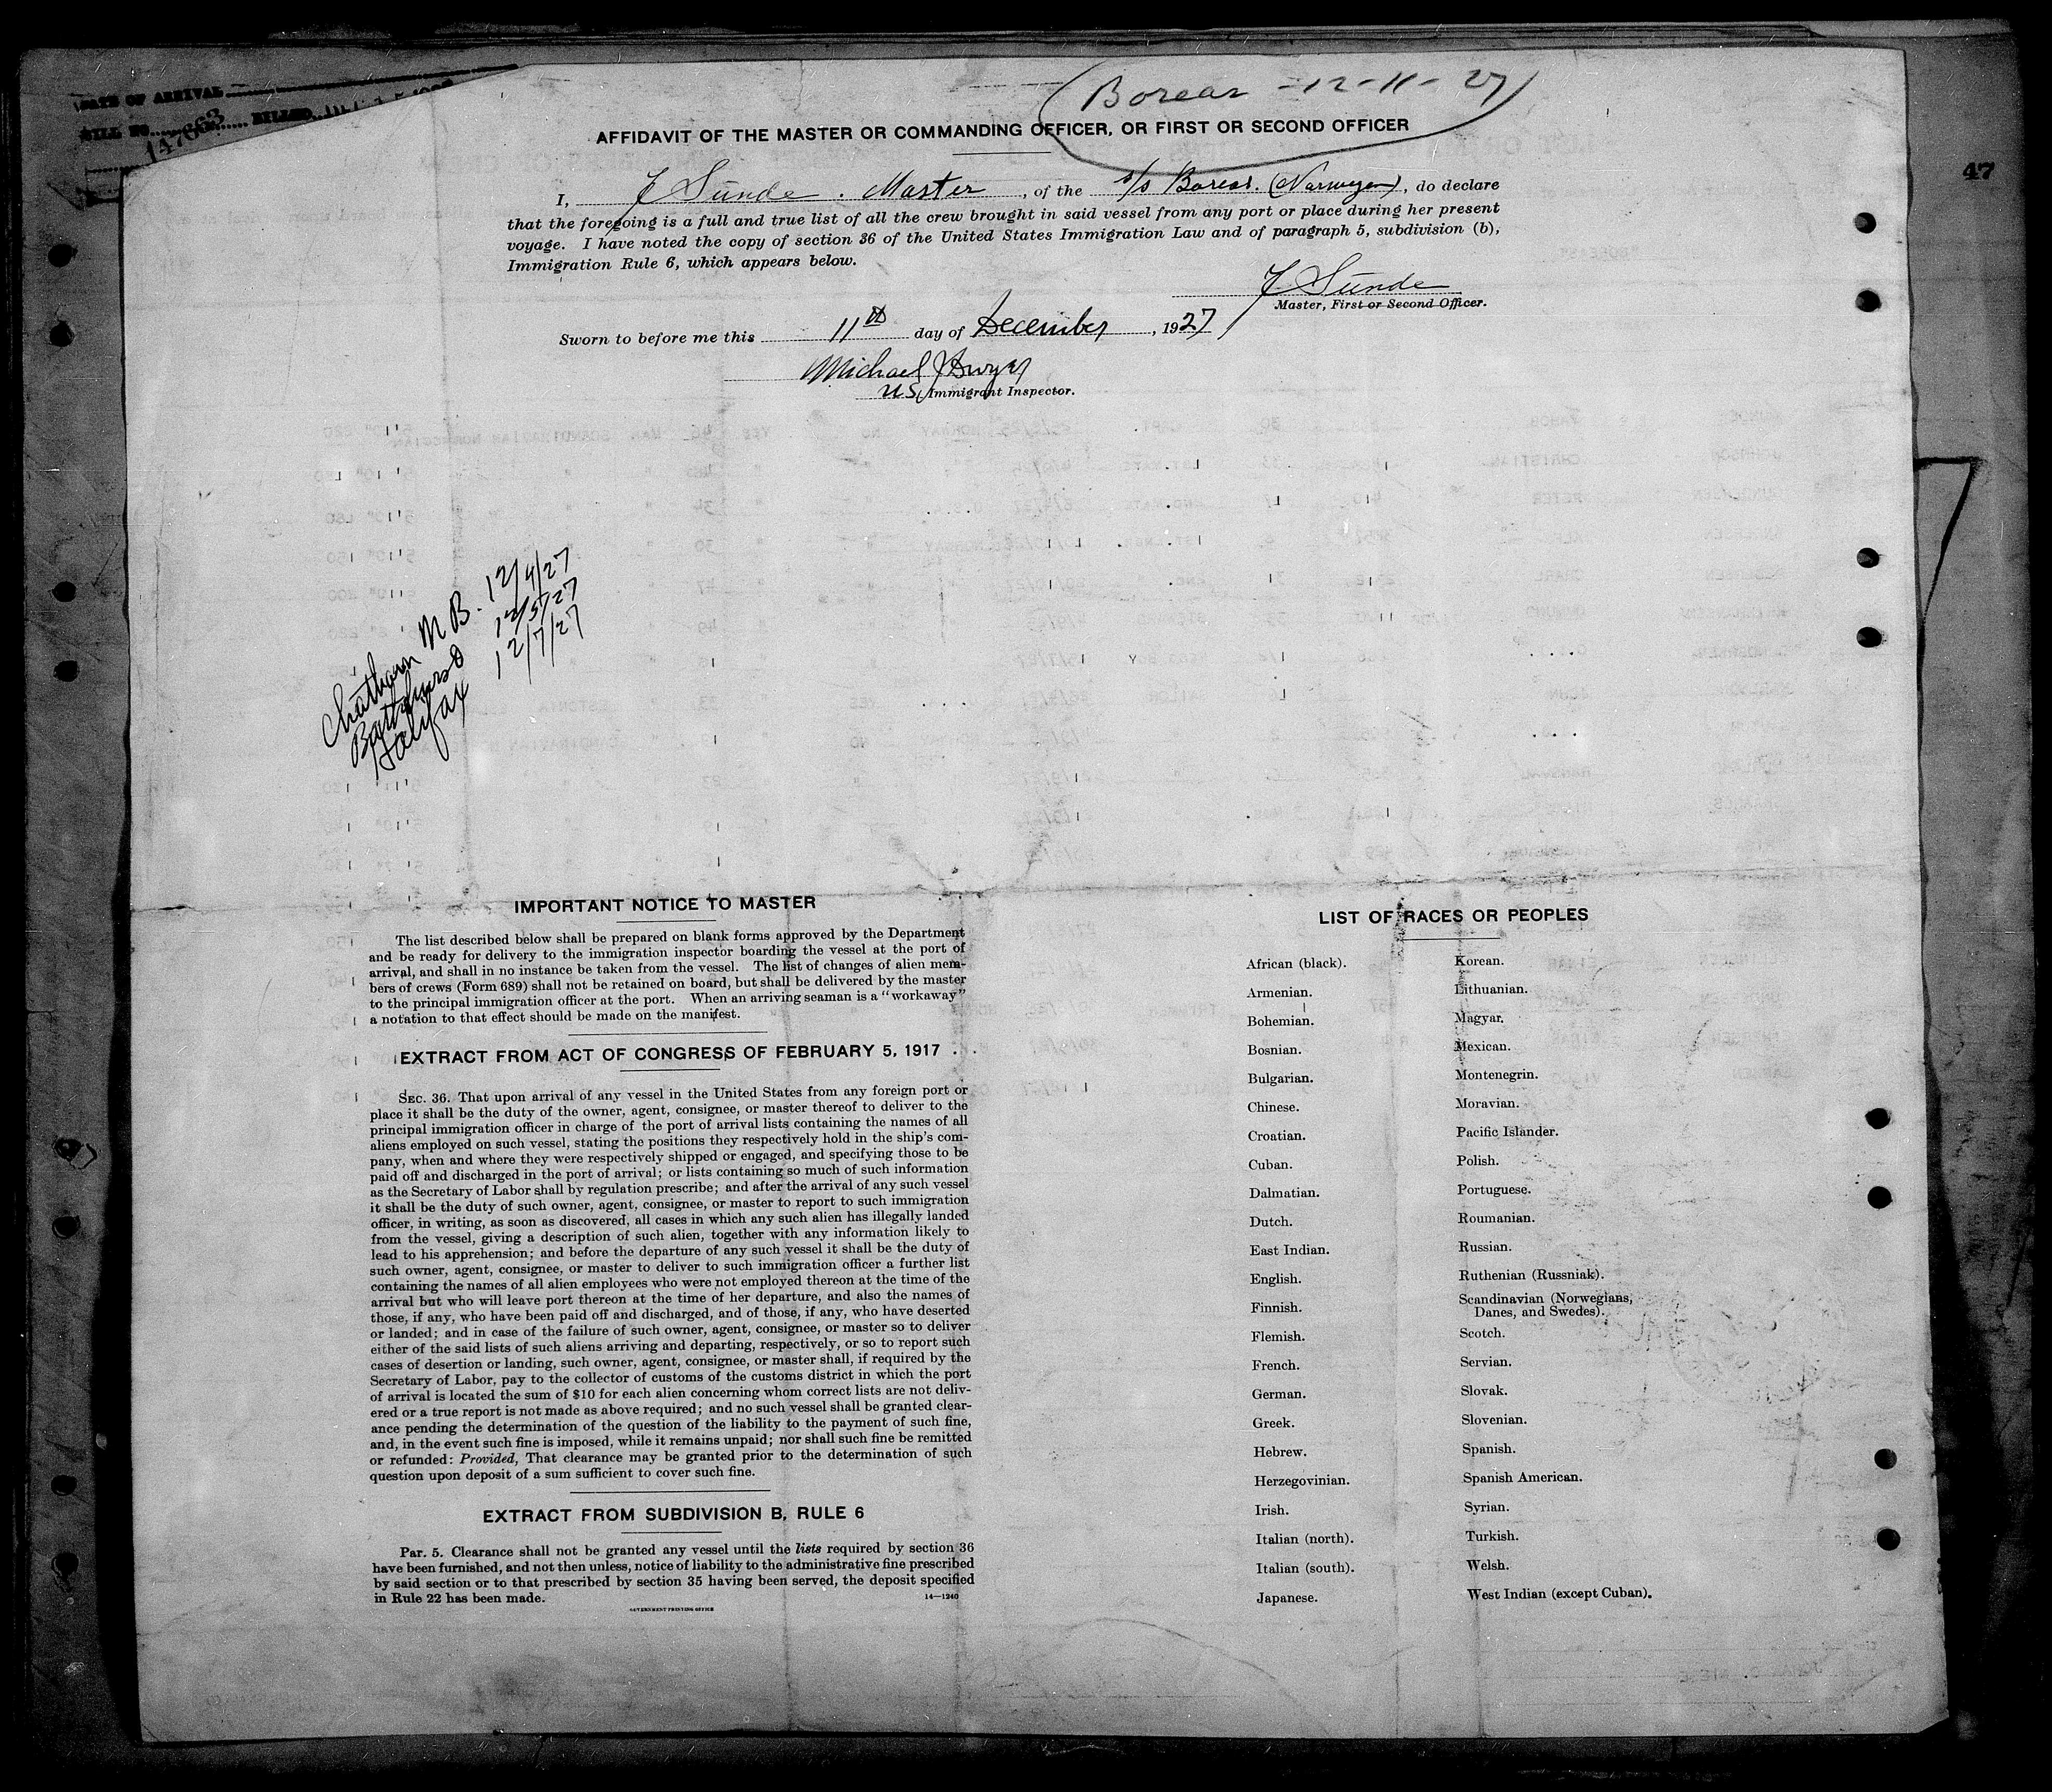 DATE OF ARRIVAL
BILL NO. 147663 BILLED
47
Boreas - 12-11-27
AFFIDAVIT OF THE MASTER OR COMMANDING OFFICER, OR FIRST OR SECOND OFFICER
I, J Sunde. Master, of the s/s Boreas. (Norwegen), do declare
that the foregoing is a full and true list of all the crew brought in said vessel from any port or place during her present
voyage. I have noted the copy of section 36 of the United States Immigration Law and of paragraph 5, subdivision (b),
Immigration Rule 6, which appears below.
J Sunde
Master, First or Second Officer.
Sworn to before me this 11th day of December, 1927
Michael J Dwyer
U.S. Immigrant Inspector.
Chatham N B. 12/4/27
Bathurst 12/5/27
Halifax 12/7/27
IMPORTANT NOTICE TO MASTER
The list described below shall be prepared on blank forms approved by the Department
and be ready for delivery to the immigration inspector boarding the vessel at the port of
arrival, and shall in no instance be taken from the vessel. The list of changes of alien mem-
bers of crews (Form 689) shall not be retained on board, but shall be delivered by the master
to the principal immigration officer at the port. When an arriving seaman is a "workaway"
a notation to that effect should be made on the manifest.
EXTRACT FROM ACT OF CONGRESS OF FEBRUARY 5, 1917
SEC. 36. That upon arrival of any vessel in the United States from any foreign port or
place it shall be the duty of the owner, agent, consignee, or master thereof to deliver to the
principal immigration officer in charge of the port of arrival lists containing the names of all
aliens employed on such vessel, stating the positions they respectively hold in the ship's com-
pany, when and where they were respectively shipped or engaged, and specifying those to be
paid off and discharged in the port of arrival; or lists containing so much of such information
as the Secretary of Labor shall by regulation prescribe; and after the arrival of any such vessel
it shall be the duty of such owner, agent, consignee, or master to report to such immigration
officer, in writing, as soon as discovered, all cases in which any such alien has illegally landed
from the vessel, giving a description of such alien, together with any information likely to
lead to his apprehension; and before the departure of any such vessel it shall be the duty of
such owner, agent, consignee, or master to deliver to such immigration officer a further list
containing the names of all alien employees who were not employed thereon at the time of the
arrival but who will leave port thereon at the time of her departure, and also the names of
those, if any, who have been paid off and discharged, and of those, if any, who have deserted
or landed; and in case of the failure of such owner, agent, consignee, or master so to deliver
either of the said lists of such aliens arriving and departing, respectively, or so to report such
cases of desertion or landing, such owner, agent, consignee, or master shall, if required by the
Secretary of Labor, pay to the collector of customs of the customs district in which the port
of arrival is located the sum of $10 for each alien concerning whom correct lists are not deliv-
ered or a true report is not made as above required; and no such vessel shall be granted clear-
ance pending the determination of the question of the liability to the payment of such fine,
and, in the event such fine is imposed, while it remains unpaid; nor shall such fine be remitted
or refunded: Provided, That clearance may be granted prior to the determination of such
question upon deposit of a sum sufficient to cover such fine.
EXTRACT FROM SUBDIVISION B, RULE 6
Par. 5. Clearance shall not be granted any vessel until the lists required by section 36
have been furnished, and not then unless, notice of liability to the administrative fine prescribed
by said section or to that prescribed by section 35 having been served, the deposit specified
in Rule 22 has been made.
14—1240
GOVERNMENT PRINTING OFFICE
LIST OF RACES OR PEOPLES
African (black).
Armenian.
Bohemian.
Bosnian.
Bulgarian.
Chinese.
Croatian.
Cuban.
Dalmatian.
Dutch.
East Indian.
English.
Finnish.
Flemish.
French.
German.
Greek.
Hebrew.
Herzegovinian.
Irish.
Italian (north).
Italian (south).
Japanese.
Korean.
Lithuanian.
Magyar.
Mexican.
Montenegrin.
Moravian.
Pacific Islander.
Polish.
Portuguese.
Roumanian.
Russian.
Ruthenian (Russniak).
Scandinavian (Norwegians,
Danes, and Swedes).
Scotch.
Servian.
Slovak.
Slovenian.
Spanish.
Spanish American.
Syrian.
Turkish.
Welsh.
West Indian (except Cuban).